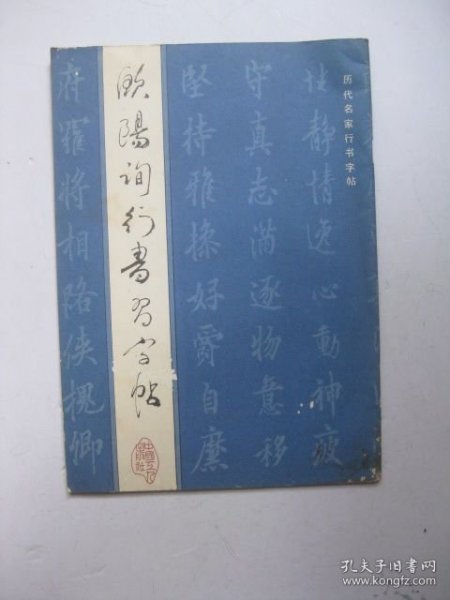 历代名家行书字帖
性静情逸心動神疲
守真志满逐物意移
堅持雅操好爵自縻
欧陽询行書習字帖
府羅將相路侠槐卿
孔夫子旧书网
www.kongfz.com